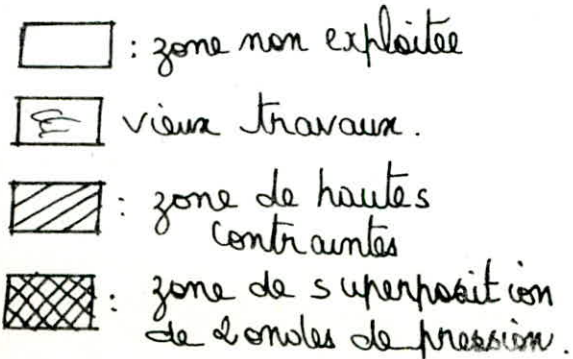 : zone non exploitée
vieux travaux.
: zone de hautes
contraintes
: zone de superposition
de 2 ondes de pression.